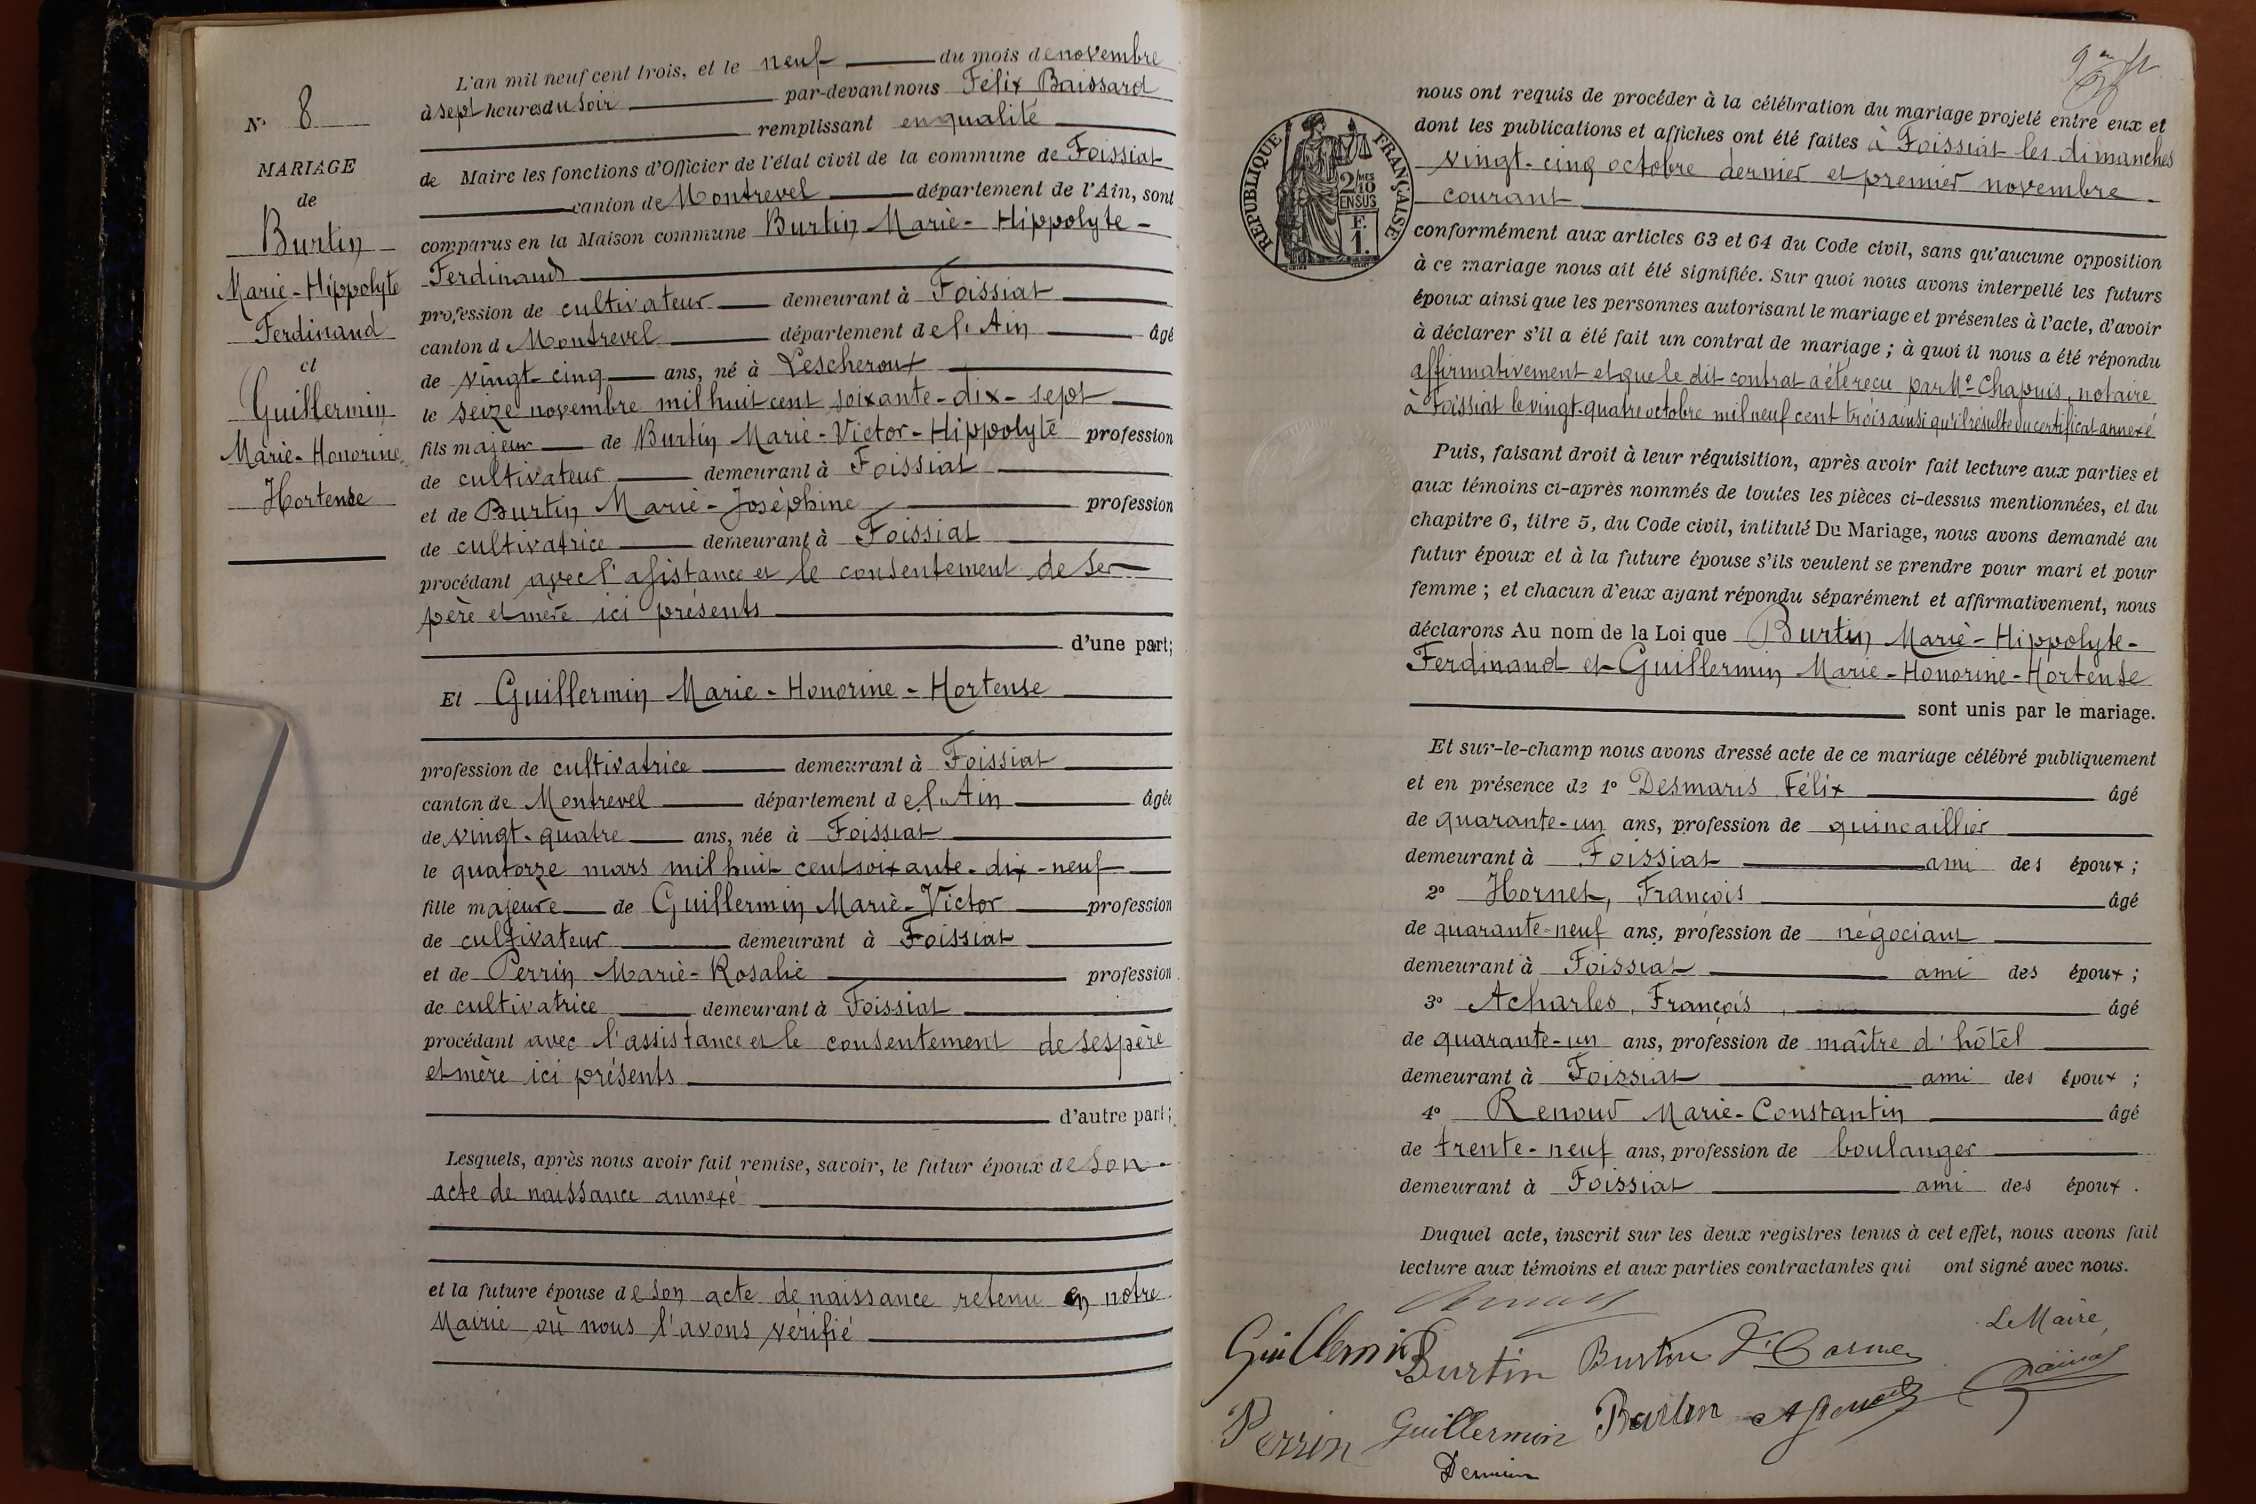 N° 8
MARIAGE
de
Burtin
Marie-Hippolyte
Ferdinand
et
Guillermin
Marie-Honorine
Hortense
L'an mil neuf cent trois, et le neuf du mois de novembre
à sept heures du soir par-devant nous Félix Baissard
remplissant en qualité
de Maire les fonctions d'Officier de l'état civil de la commune de Foissiat
canton de Montrevel département de l'Ain, sont
comparus en la Maison commune Burtin Marie-Hippolyte-
Ferdinand
profession de cultivateur demeurant à Foissiat
canton d Montrevel département de l'Ain âgé
de vingt-cinq ans, né à Lescheroux
le seize novembre mil huit cent soixante-dix-sept
fils majeur de Burtin Marie-Victor-Hippolyte profession
de cultivateur demeurant à Foissiat
et de Burtin Marie-Joséphine profession
de cultivatrice demeurant à Foissiat
procédant avec l'assistance et le consentement de ses
père et mère ici présents
d'une part;
Et Guillermin Marie-Honorine-Hortense
profession de cultivatrice demeurant à Foissiat
canton de Montrevel département de l'Ain âgée
de vingt-quatre ans, née à Foissiat
le quatorze mars mil huit cent soixante-dix-neuf
fille majeure de Guillermin Marie-Victor profession
de cultivateur demeurant à Foissiat
et de Perrin Marie-Rosalie profession
de cultivatrice demeurant à Foissiat
procédant avec l'assistance et le consentement de ses père
et mère ici présents
d'autre part;
Lesquels, après nous avoir fait remise, savoir, le futur époux de son
acte de naissance annexé
et la future épouse de son acte de naissance retenu en notre
Mairie où nous l'avons vérifié
RÉPUBLIQUE FRANÇAISE
2 MES 10
EN SUS
F.
1.
nous ont requis de procéder à la célébration du mariage projeté entre eux et
dont les publications et affiches ont été faites à Foissiat les dimanches
vingt-cinq octobre dernier et premier novembre
courant
conformément aux articles 63 et 64 du Code civil, sans qu'aucune opposition
à ce mariage nous ait été signifiée. Sur quoi nous avons interpellé les futurs
époux ainsi que les personnes autorisant le mariage et présentes à l'acte, d'avoir
à déclarer s'il a été fait un contrat de mariage ; à quoi il nous a été répondu
affirmativement et que le dit contrat a été reçu par Me Chapuis, notaire
à Foissiat le vingt-quatre octobre mil neuf cent trois ainsi qu'il résulte du certificat annexé
Puis, faisant droit à leur réquisition, après avoir fait lecture aux parties et
aux témoins ci-après nommés de toutes les pièces ci-dessus mentionnées, et du
chapitre 6, titre 5, du Code civil, intitulé Du Mariage, nous avons demandé au
futur époux et à la future épouse s'ils veulent se prendre pour mari et pour
femme ; et chacun d'eux ayant répondu séparément et affirmativement, nous
déclarons Au nom de la Loi que Burtin Marie-Hippolyte-
Ferdinand et Guillermin Marie-Honorine-Hortense
sont unis par le mariage.
Et sur-le-champ nous avons dressé acte de ce mariage célébré publiquement
et en présence de 1° Desmaris Félix âgé
de quarante-un ans, profession de quincaillier
demeurant à Foissiat ami des époux ;
2° Hornet, François âgé
de quarante-neuf ans, profession de négociant
demeurant à Foissiat ami des époux ;
3° Acharles, François, âgé
de quarante-un ans, profession de maître d'hôtel
demeurant à Foissiat ami des époux ;
4° Renoud Marie-Constantin âgé
de trente-neuf ans, profession de boulanger
demeurant à Foissiat ami des époux.
Duquel acte, inscrit sur les deux registres tenus à cet effet, nous avons fait
lecture aux témoins et aux parties contractantes qui ont signé avec nous.
Le Maire,
Guillermin Burtin Burtin
Perrin Guillermin Burtin